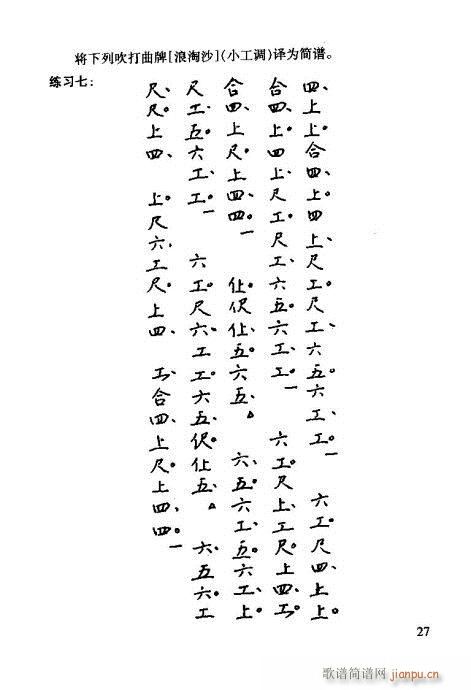 将下列吹打曲牌[浪淘沙](小工调)译为简谱。
练习七:
四、上、上。合四、上。四上、尺工。尺工、六五。六工、工。一 六工。尺四、上、上。
合四、上。四上、尺工。尺工、六五。六工、工。一 六工。尺上、工尺。上四、工。
合四、上、尺。上四、四。一 仩、伬仩、五。六五、△ 六、五。六工、五。六工、上。
尺、工、五。六工、工。一 六工。尺六、工工。六五。伬。仩五、△ 六、五六。工
尺、尺。上四、 上。尺六、工尺。上四、 工、合四、上尺。上四、四。一
27
歌谱简谱网
jianpu.cn